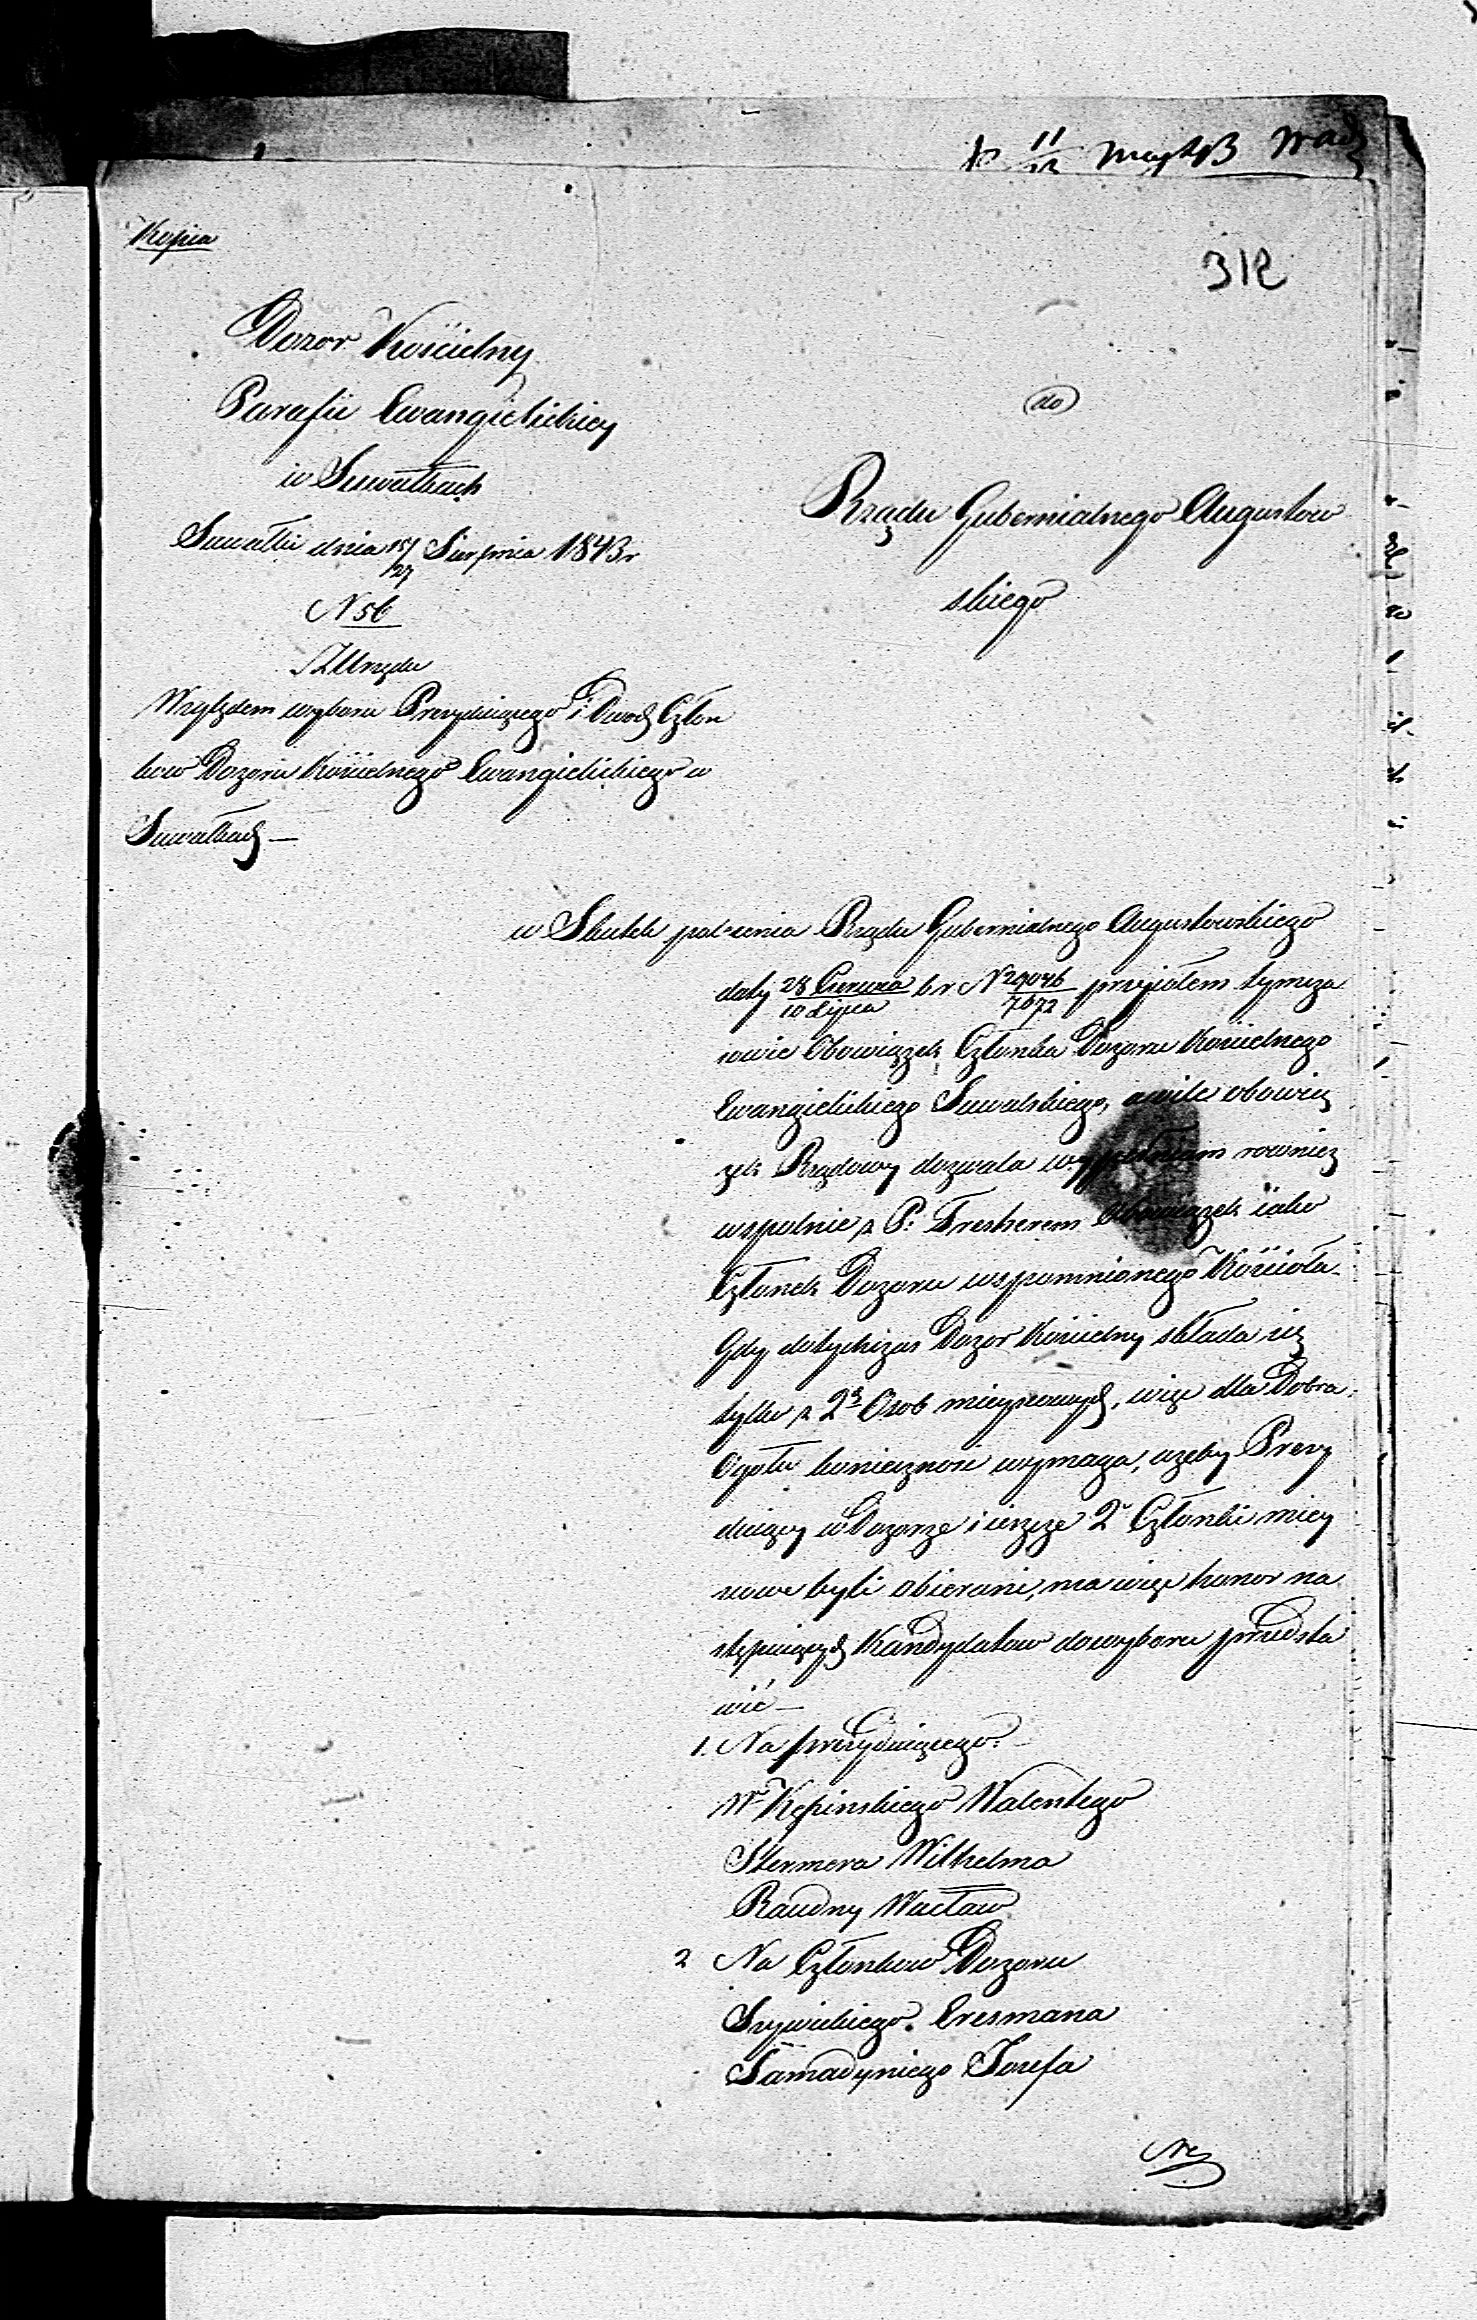 Kopia
312
Dozor Kościelny
Parafii Ewangielickiey
w Suwałkach
Suwałki dnia 15/27 Sierpnia 1843 r
N 56
Z Urzędu
Względem wyboru Prezyduiącego i Dwoch Człon
kow Dozoru Kościelnego Ewangielickiego w
Suwałkach —
do
Rządu Gubernialnego Augustow
skiego
w Skutek polecenia Rządu Gubernialnego Augustowskiego
daty 28 Czerwca/10 Lipca b r N 29046/7672 przyiołem tymcza
sowie Obowiązek Członka Dozoru Kościelnego
Ewangielickiego Suwalskiego, a wile obowią
zek Rządowy dozwala wypełniam rownież
wspolnie z P: Fresherem Obowiązek iako
Członek Dozoru wspomnionego Kościoła
Gdy dotychczas Dozor Kościelny składa się
tylko z 2ch Osob mieyscowych, więc dla Dobra
Ogołu konieczność wymaga, ażeby Prezy
duiący w Dozorze i ieszcze 2 Członki miey
scowe byli obierani, ma więc honor na
stępuiących Kandydatow do wyboru przedsta
wić —
1. Na prezyduiącego.
Wo Kępinskiego Walentego
Stermera Wilhelma
Raudny Wacław
2 Na Członkow Dozoru
Szywickiego Eresmana
Samadyniego Jozefa